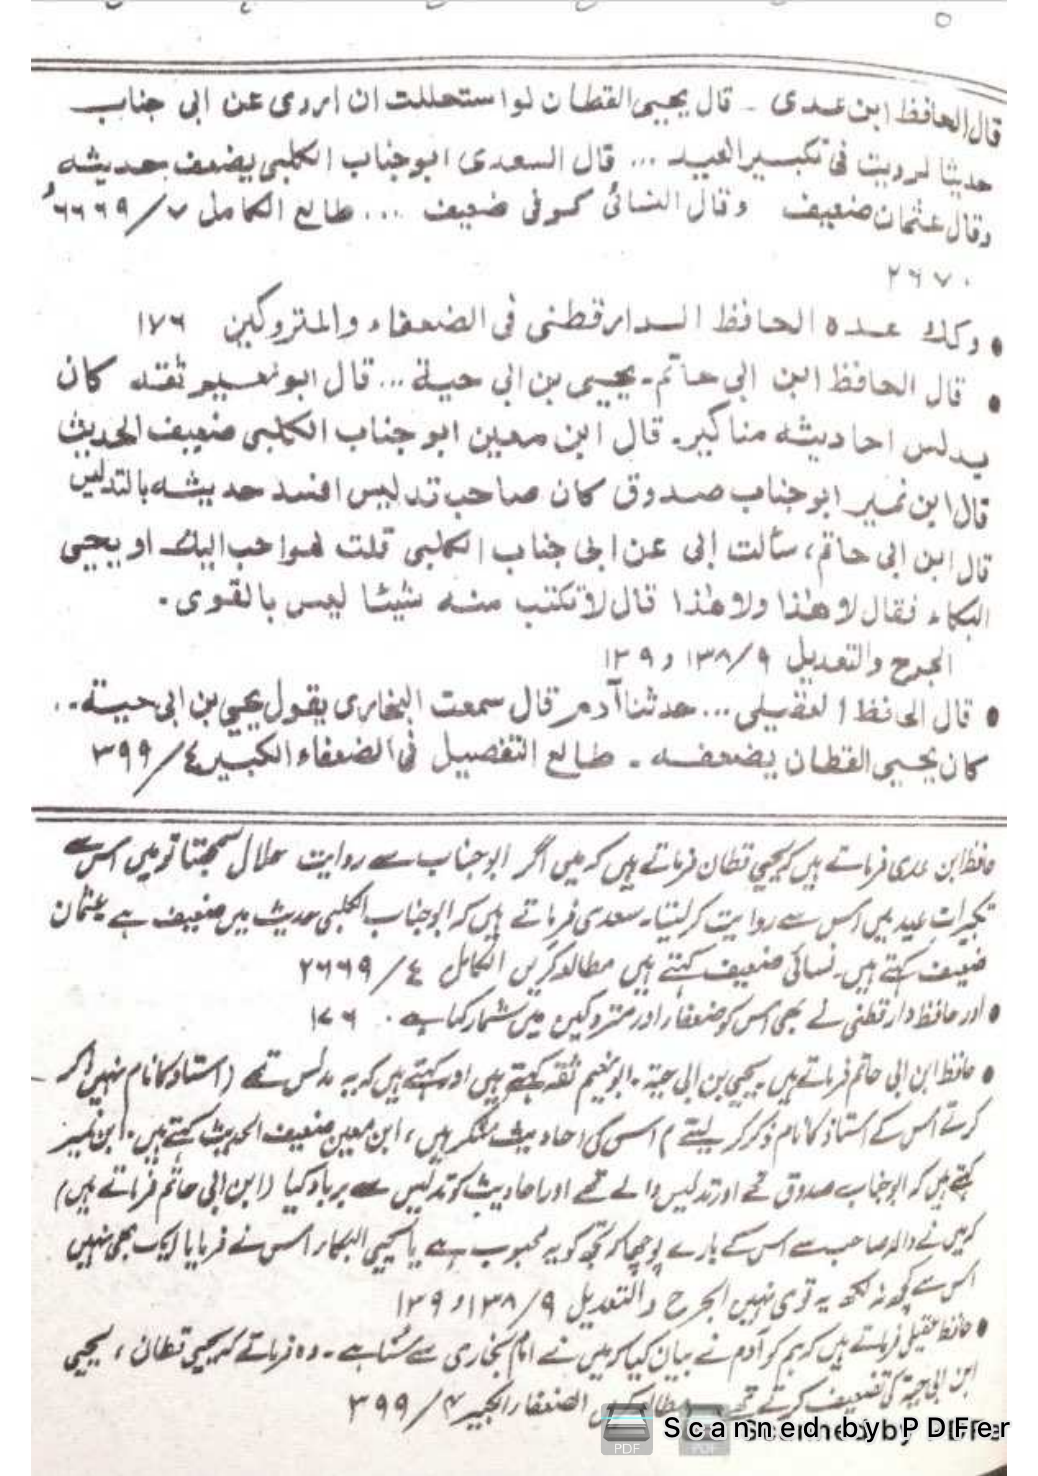 قال الحافظ ابن عدى - قال يحيى القطان لواستحللت ان اروى عن ابى جناب
حديثا لرويت فى تكبير العيد ... قال السعدى ابوجناب الكلبى يضعف حديثه
وقال عثمان ضعيف وقال النسائى كوفى ضعيف ... طالع الكامل ٧/٢٦٦٩،
٢٦٧٠
• وكذ عده الحافظ الدارقطنى فى الضعفاء والمتروكين ١٧٦
• قال الحافظ ابن ابى حاتم - يحيى بن ابى حية ... قال ابونعيم ثقه كان
يدلس احاديثه مناكير - قال ابن معين ابو جناب الكلبى ضعيف الحديث
قال ابن نمير ابوجناب صدوق كان صاحب تدليس افسد حديثه بالتدليس
قال ابن ابى حاتم، سألت ابى عن ابى جناب الكلبى قلت هواحب اليك او يحيى
البكاء فقال لا هذا ولا هذا قال لا تكتب منه شيئا ليس بالقوى -
الجرح والتعديل ٩/١٣٨ و ١٣٩
• قال الحافظ العقيلى ... حدثنا آدم قال سمعت البخارى يقول يحيى بن ابى حية ..
كان يحيى القطان يضعفه - طالع التفصيل فى الضعفاء الكبير ٤/٣٩٩
حافظ ابن عدی فرماتے ہیں کہ یحیی قطان فرماتے ہیں کہ میں اگر ابوجناب سے روایت حلال سمجھتا تو میں اس سے
تکبیرات عید میں اس سے روایت کر لیتا۔ سعدی فرماتے ہیں کہ ابوجناب الکلبی حدیث میں ضعیف ہے عثمان
ضعیف کہتے ہیں۔ نسائی ضعیف کہتے ہیں مطالعہ کریں الکامل ٤/٢٦٦٩
• اور حافظ دارقطنی نے بھی اس کو ضعفاء اور متروکین میں شمار کیا ہے۔ ١٧٦
• حافظ ابن ابی حاتم فرماتے ہیں۔ یحیی بن ابی حیة۔ ابونعیم ثقہ کہتے ہیں اور کہتے ہیں کہ یہ مدلس تھے (استاد کا نام نہیں ذکر
کرتے اس کے استاذ کا نام ذکر کر لیتے) اس کی احادیث منکر ہیں، ابن معین ضعیف الحدیث کہتے ہیں۔ ابن نمیر
کہتے ہیں کہ ابوجناب صدوق تھے اور تدلیس والے تھے اور احادیث کو تدلیس سے برباد کیا (ابن ابی حاتم فرماتے ہیں)
کہ میں نے والد صاحب سے اس کے بارے پوچھا کہ تجھ کو یہ محبوب ہے یا یحیی البکاء اس نے فرمایا ایک بھی نہیں
اس سے کچھ نہ لکھ یہ قوی نہیں الجرح والتعدیل ٩/١٣٨ و ١٣٩
• حافظ عقیلی فرماتے ہیں کہ ہم کو آدم نے بیان کیا کہ میں نے امام بخاری سے سُنا ہے۔ وہ فرماتے کہ یحیی قطان، یحیی
ابن ابی حیة کی تضعیف کرتے تھے الضعفاء الکبیر ٤/٣٩٩